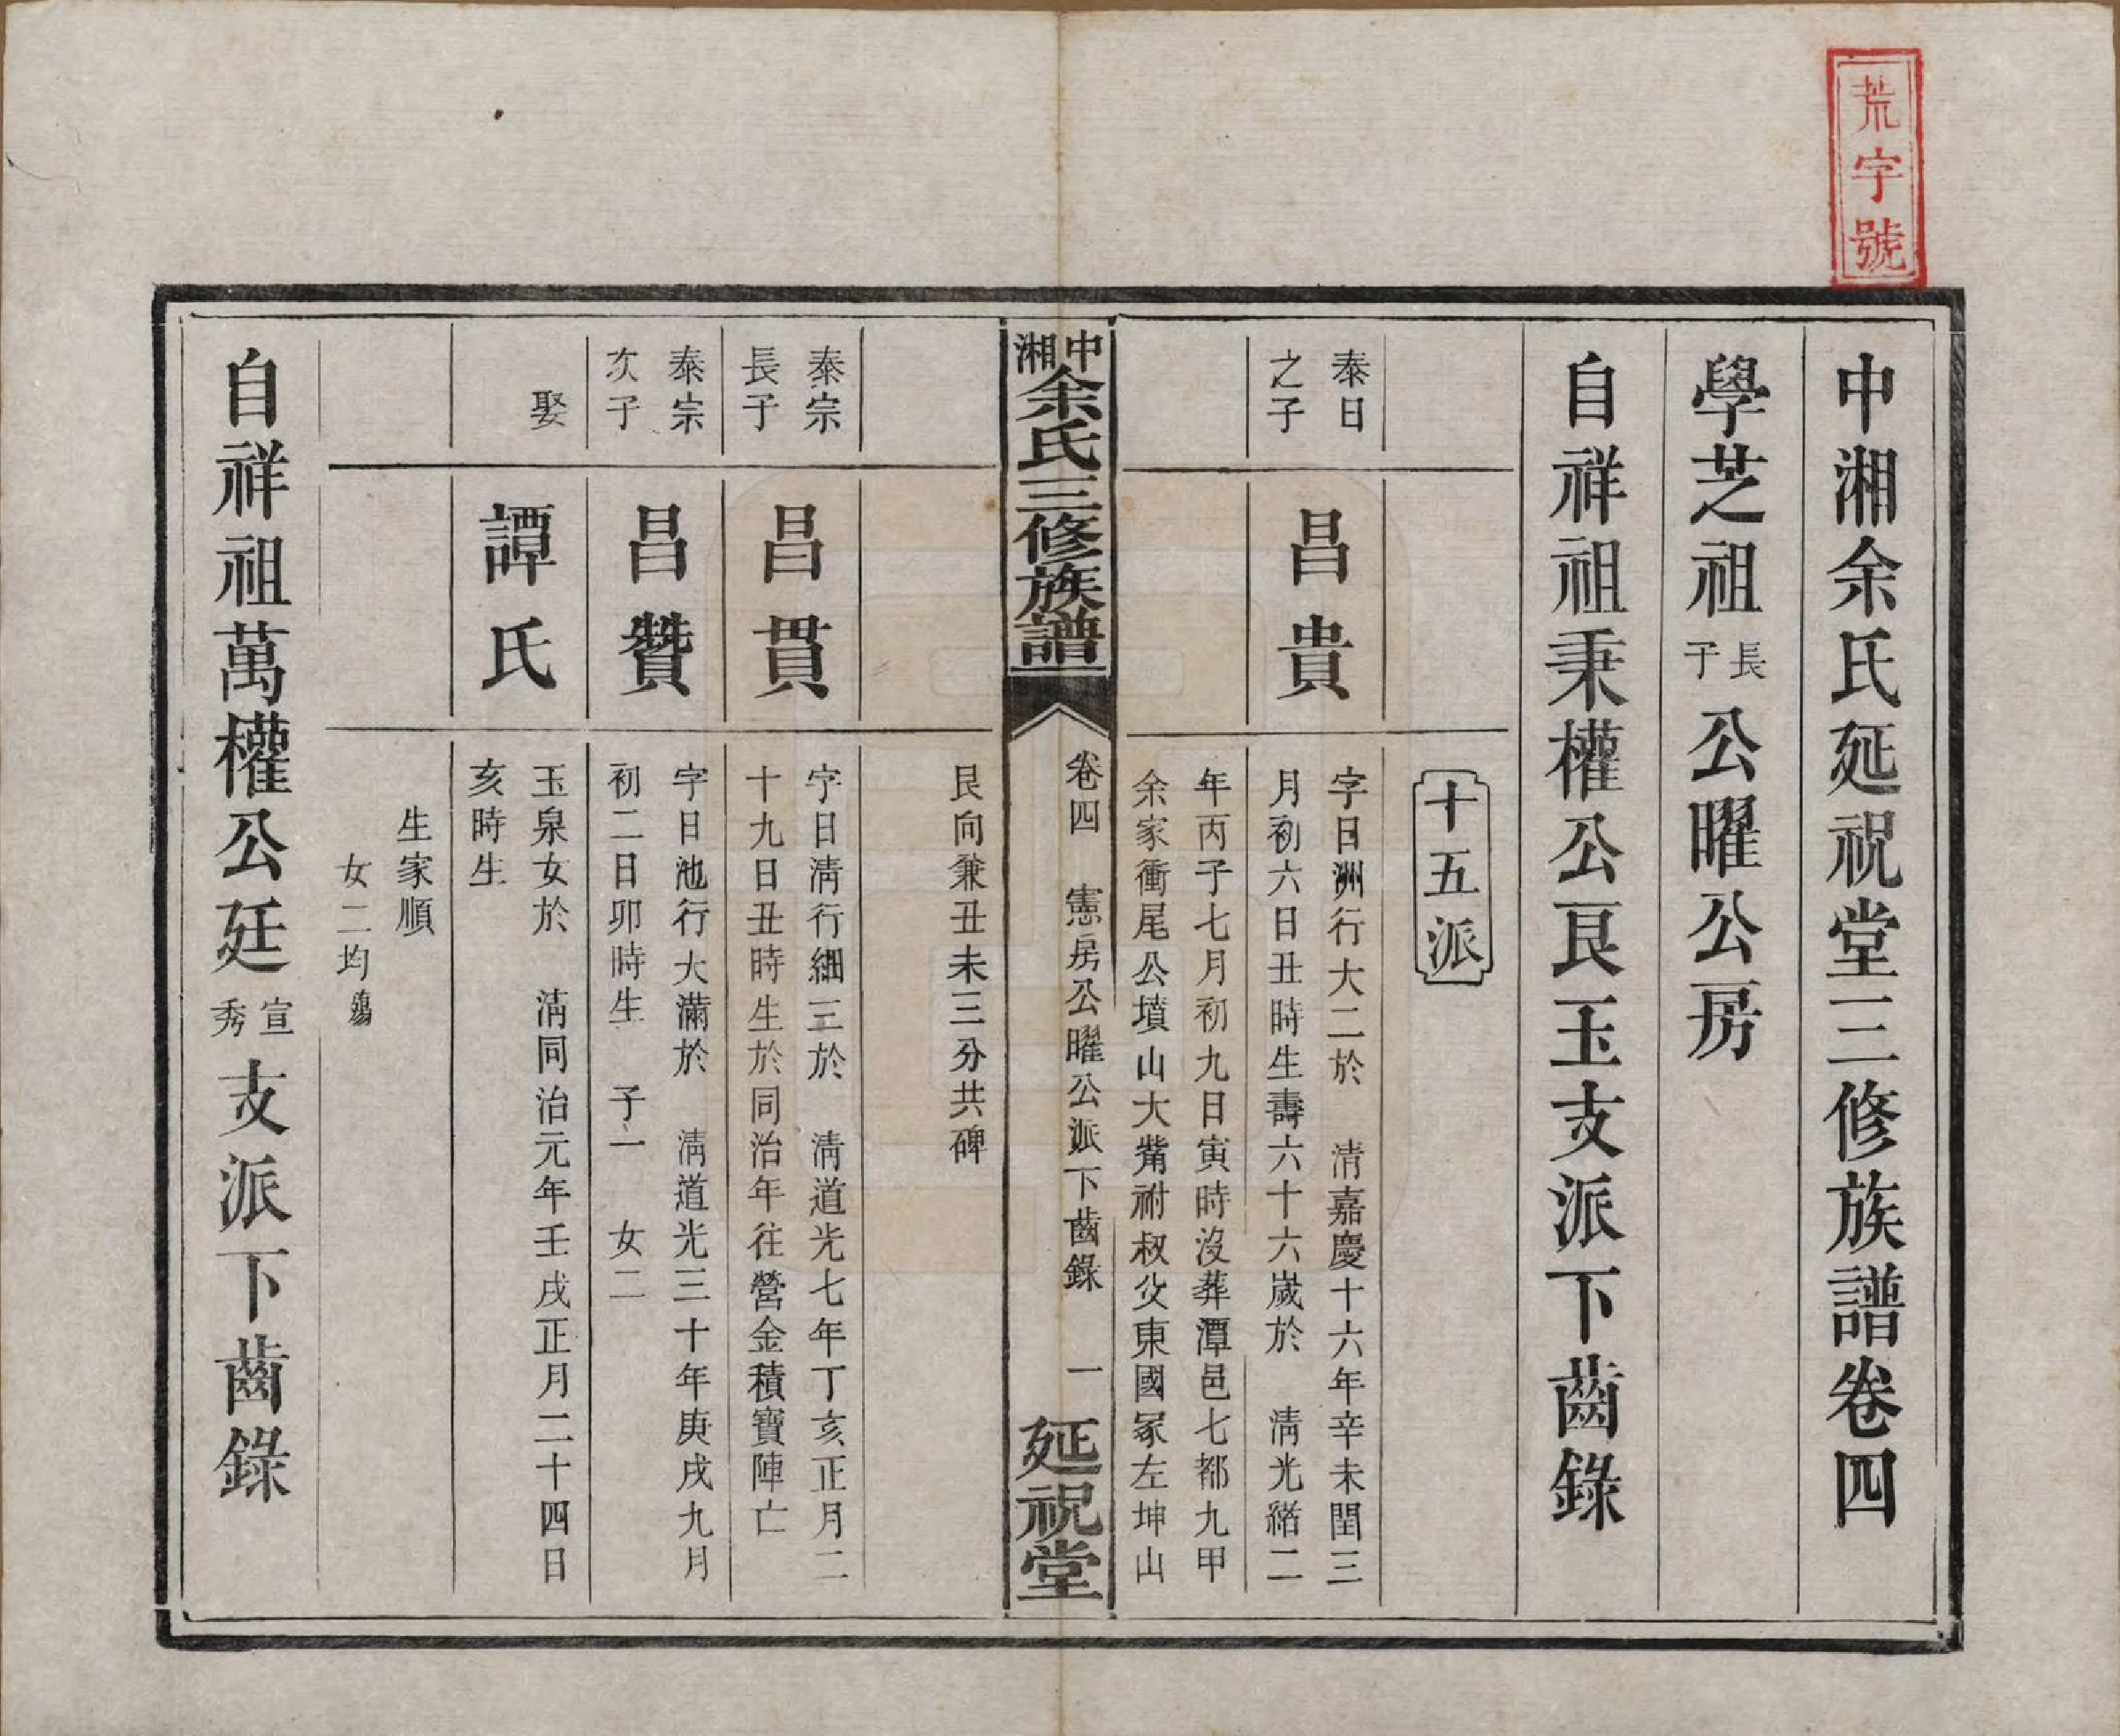 荒字號
中湘余氏延祝堂三修族譜卷四
學芝祖長子公曜公房
自祥祖秉權公艮玉支派下齒錄
十五派
泰日之子
昌貴
字日洲行大二於 清嘉慶十六年辛未閏三
月初六日丑時生壽六十六嵗於 清光緒二
年丙子七月初九日寅時沒葬潭邑七都九甲
余家衝尾公墳山大觜祔叔父東國冢左坤山
中湘余氏三修族譜
卷四 憲房公曜公派下齒錄 一
延祝堂
艮向兼丑未三分共碑
泰宗長子
昌貫
字日淸行細三於 淸道光七年丁亥正月二
十九日丑時生於同治年往營金積寶陣亡
泰宗次子
昌贊
字日池行大滿於 淸道光三十年庚戌九月
初二日卯時生 子一 女二
娶
譚氏
玉泉女於 淸同治元年壬戌正月二十四日
亥時生
生家順
女二均殤
自祥祖萬權公廷宣秀支派下齒錄